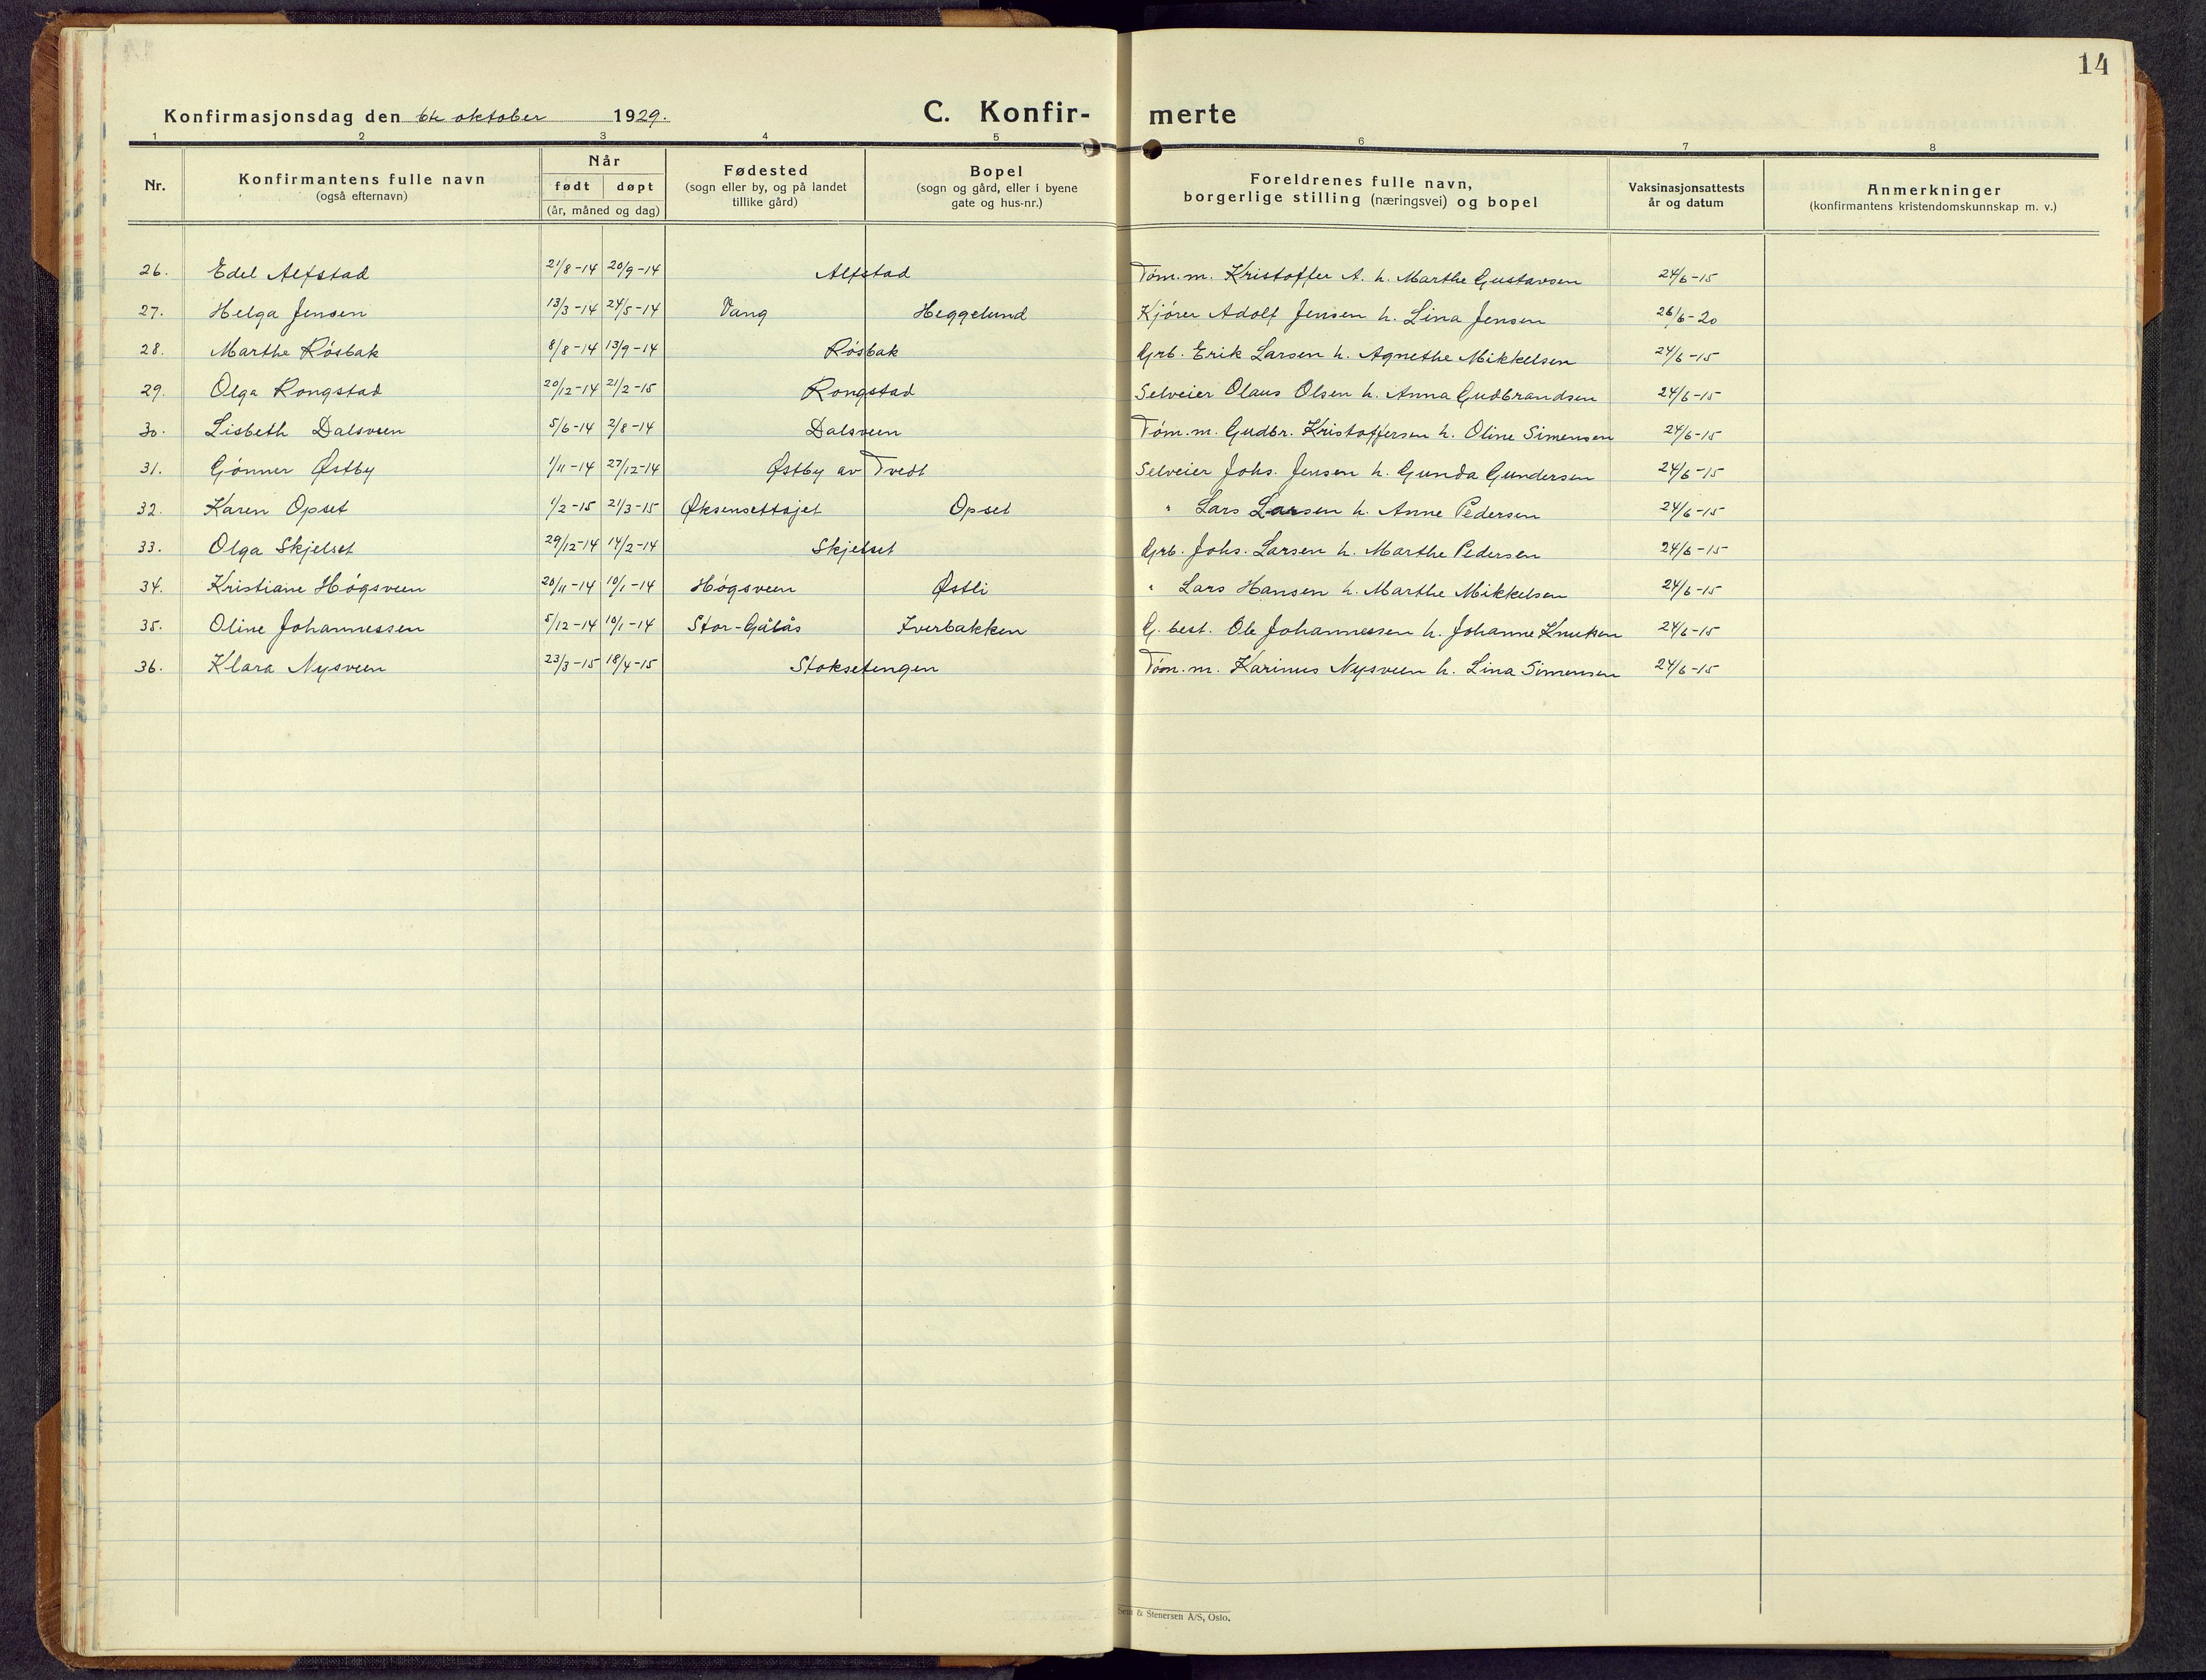 14
Konfirmasjonsdag den 6te oktober 1929. C. Konfir- merte
1 2 3 4 5 6 7 8
Nr. Konfirmantens fulle navn (også efternavn) Når født døpt (år, måned og dag) Fødested (sogn eller by, og på landet tillike gård) Bopel (sogn og gård, eller i byene gate og hus-nr.) Foreldrenes fulle navn, borgerlige stilling (næringsvei) og bopel Vaksinasjonsattests år og datum Anmerkninger (konfirmantens kristendomskunnskap m. v.)
26. Edel Alfstad 21/8-14 20/9-14 Alfstad Tøm.m. Kristoffer A. h. Marthe Gustavsen 24/6-15
27. Helga Jensen 13/3-14 24/5-14 Vang Heggelund Kjører Adolf Jensen h. Lina Jensen 26/6-20
28. Marthe Røsbak 8/8-14 13/9-14 Røsbak Grb. Erik Larsen h. Agnethe Mikkelsen 24/6-15
29. Olga Rongstad 20/12-14 21/2-15 Rongstad Selveier Olaus Olsen h. Anna Gudbrandsen 24/6-15
30. Lisbeth Dalsveen 5/6-14 2/8-14 Dalsveen Tøm.m. Gudbr. Kristoffersen h. Oline Simensen 24/6-15
31. Gønner Østby 1/11-14 27/12-14 Østby av Tvedt Selveier Johs. Jensen h. Gunda Gundersen 24/6-15
32. Karen Opset 1/2-15 21/3-15 Øksensettajet Opset " Lars Larsen h. Anne Pedersen 24/6-15
33. Olga Skjelset 29/12-14 14/2-14 Skjelset Grb. Johs. Larsen h. Marthe Pedersen 24/6-15
34. Kristiane Høgsveen 20/11-14 10/1-14 Høgsveen Østli " Lars Hansen h. Marthe Mikkelsen 24/6-15
35. Oline Johannessen 5/12-14 10/1-14 Stor-Gålås Iverbakken G. best. Ole Johannessen h. Johanne Knutsen 24/6-15
36. Klara Nysveen 23/3-15 18/4-15 Stoksetengen Tøm.m. Karinus Nysveen h. Lina Simensen 24/6-15
& Stenersen A/S, Oslo.